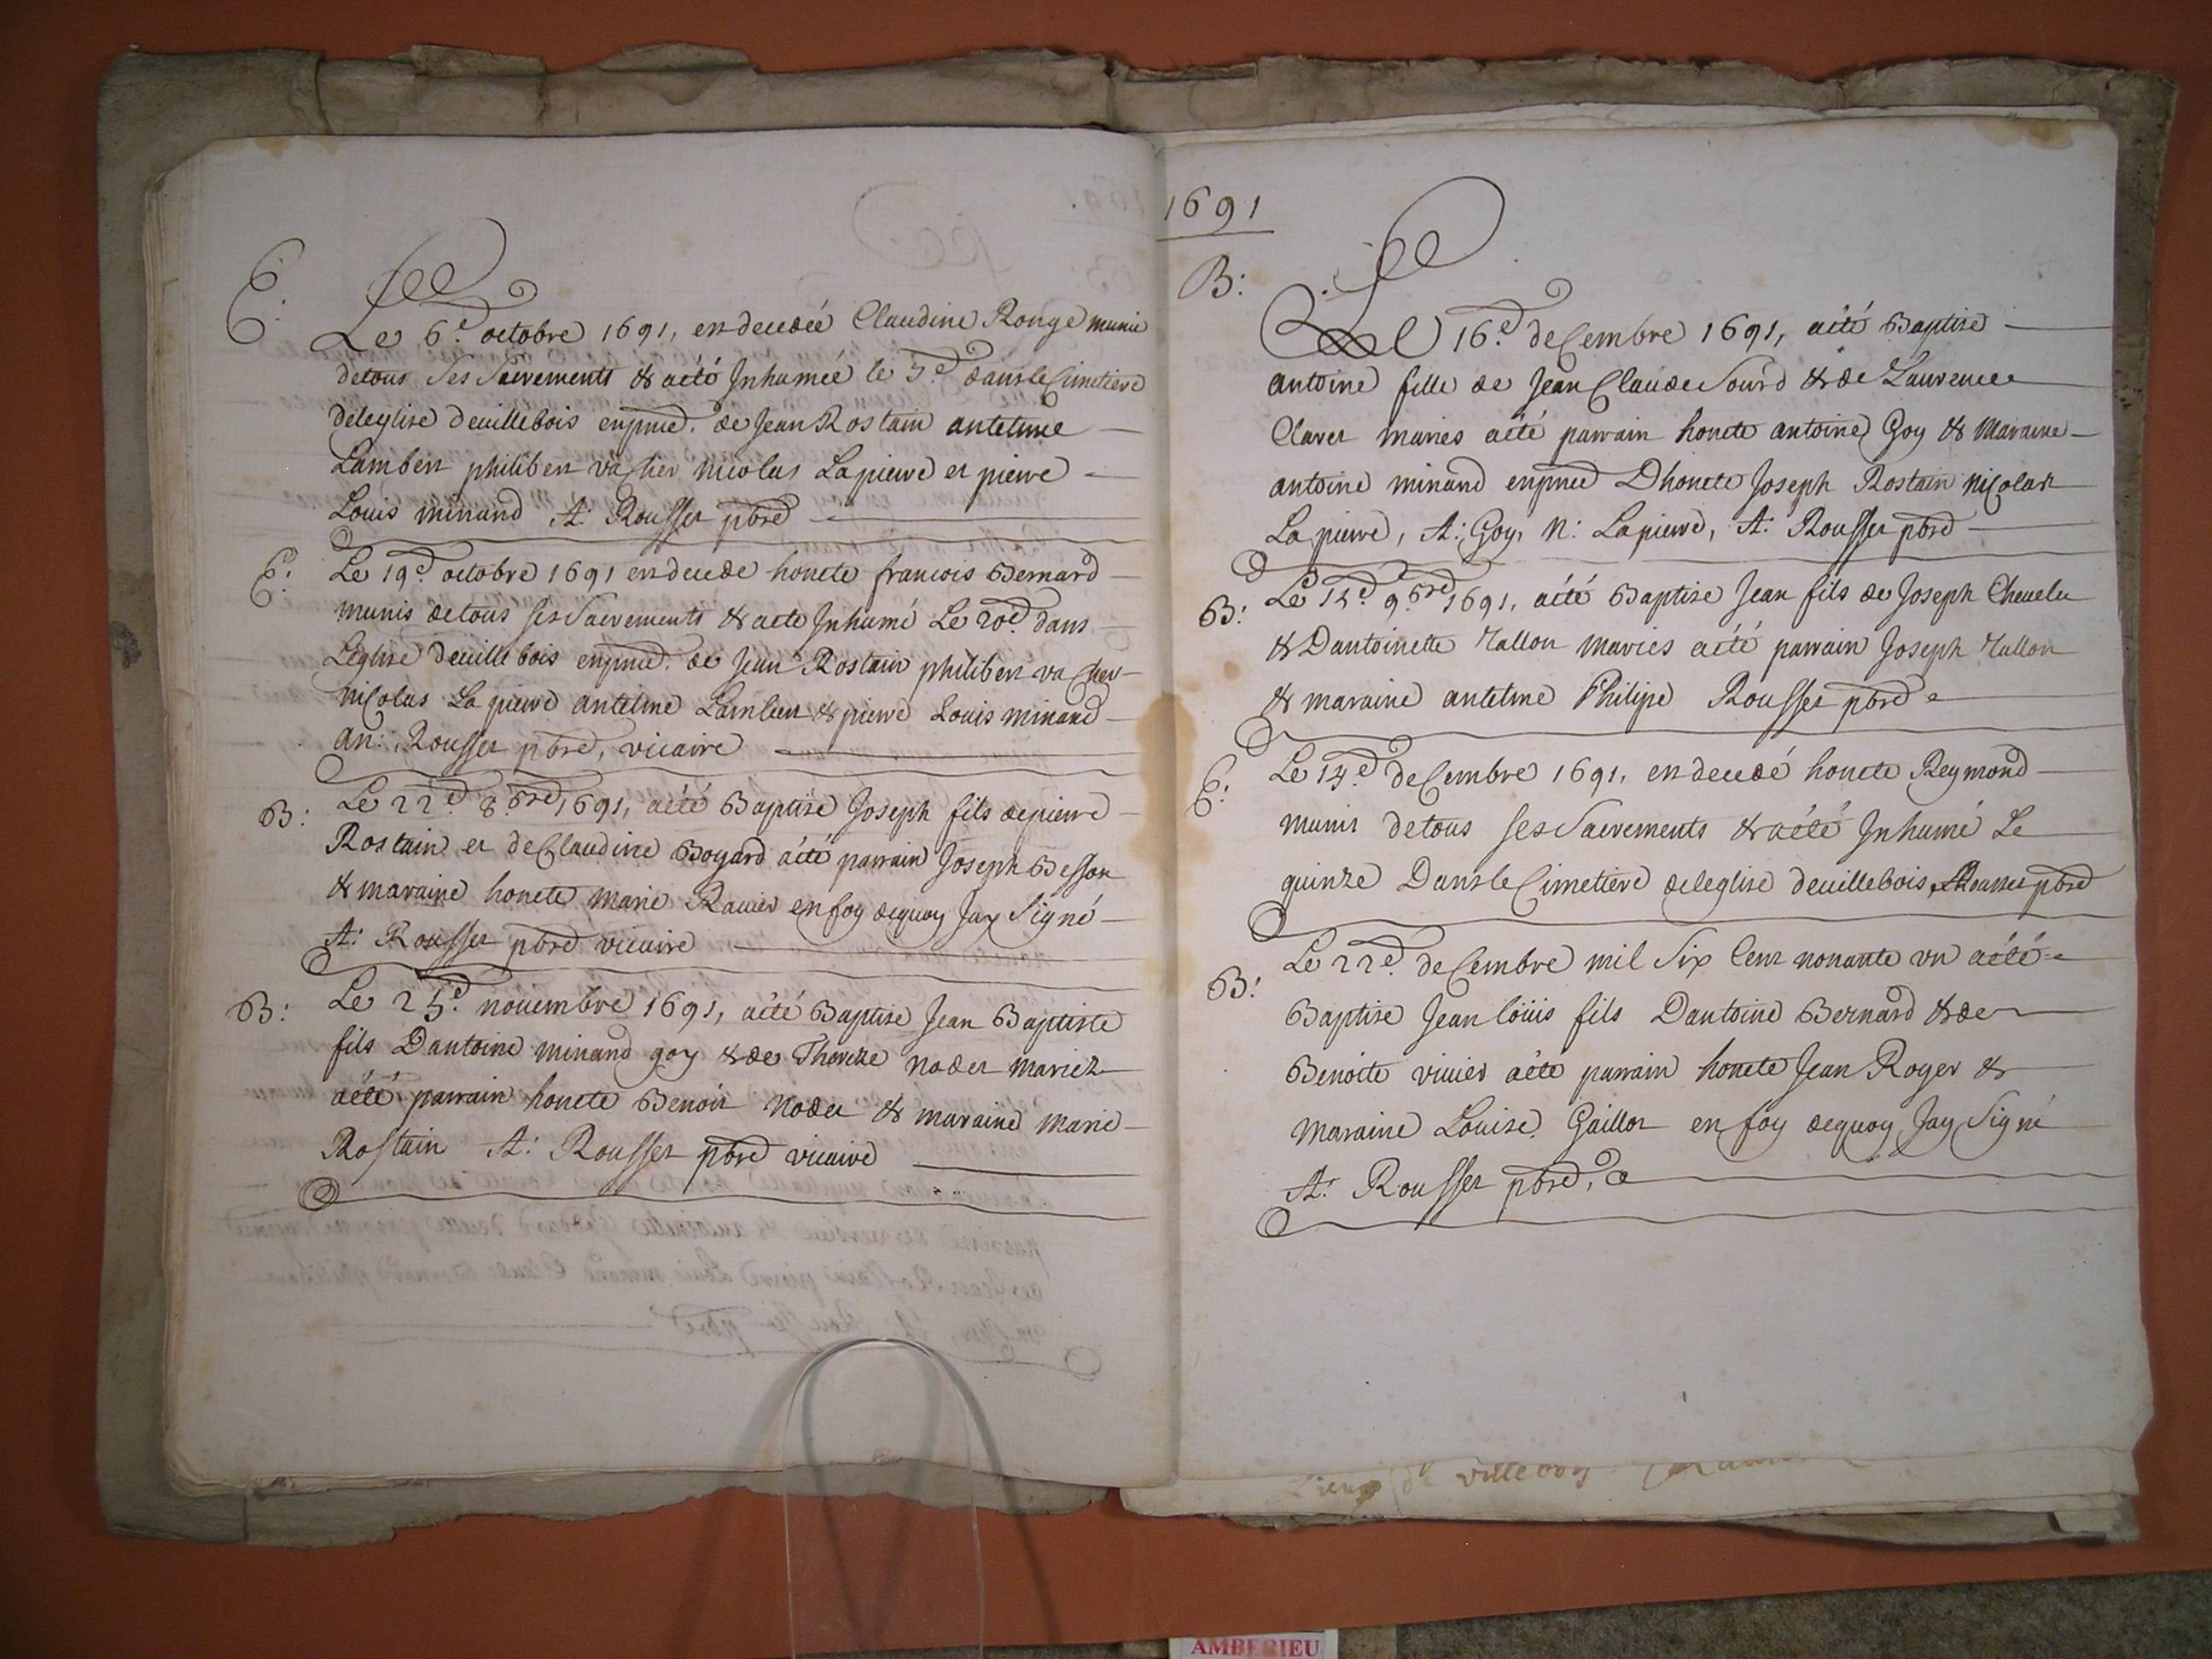 1691
E:
Le 6.e octobre 1691, en decedeé Claudine Ronge munie
detous ses Sacrements & aété Inhumeé le 7.e dans le Cimetiere
deleglise deuillebois enpnce. de Jean Rostain antelme
Lambert philibert vacher nicolas Lapierre et pierre
Louis minand A: Rousset pbre
E:
Le 19.e octobre 1691 en decede honete francois Bernard
munis detous ses Sacrements & aete Inhumé Le 20.e dans
Leglise deuillebois enpnce. de Jean Rostain philibert vacher
nicolas La pierre antelme Lambert & pierre Louis minand
an: Rousset pbre, vicaire
B:
Le 22.e 8.bre 1691, aété Baptisé Joseph fils depierre
Rostain et de Claudine Bogard aété parrain Joseph Besson
& maraine honete marie Rauier en foy dequoy Jay Signé
A: Rousset pbre vicaire
B:
Le 25.e nouembre 1691, aété Baptise Jean Baptiste
fils Dantoine minand goy & de Thereze noder mariez
aété parrain honete Benoit noder & maraine marie
Rostain A: Rousset pbre vicaire
B:
Le 16.e decembre 1691, aété Baptise
antoine fille de Jean Claude Sourd & de Laurence
Claret maries aété parrain honete antoine Goy & Maraine
antoine minand enpnce Dhonete Joseph Rostain nicolas
La pierre, A: Goy, N: Lapierre, A: Rousset pbre
B:
Le 12.e 9.bre 1691, aété Baptise Jean fils de Joseph Cheuelu
& Dantoinette Tallon maries aété parrain Joseph Tallon
& maraine antelme Philipe Rousset pbre
E:
Le 14.e decembre 1691, en decedé honete Reymond
munis detous ses Sacrements & aété Inhumé Le
quinze Dans le Cimetiere deleglise deuillebois A Rousset pbre
B:
Le 22.e decembre mil Six Cent nonante un aété
Baptise Jean loüis fils Dantoine Bernard & de
Benoite viuier aété parrain honete Jean Roger &
maraine Louise Gaillot en foy dequoy Jay Signé
A: Rousset pbre,
de ville
AMBERIEU